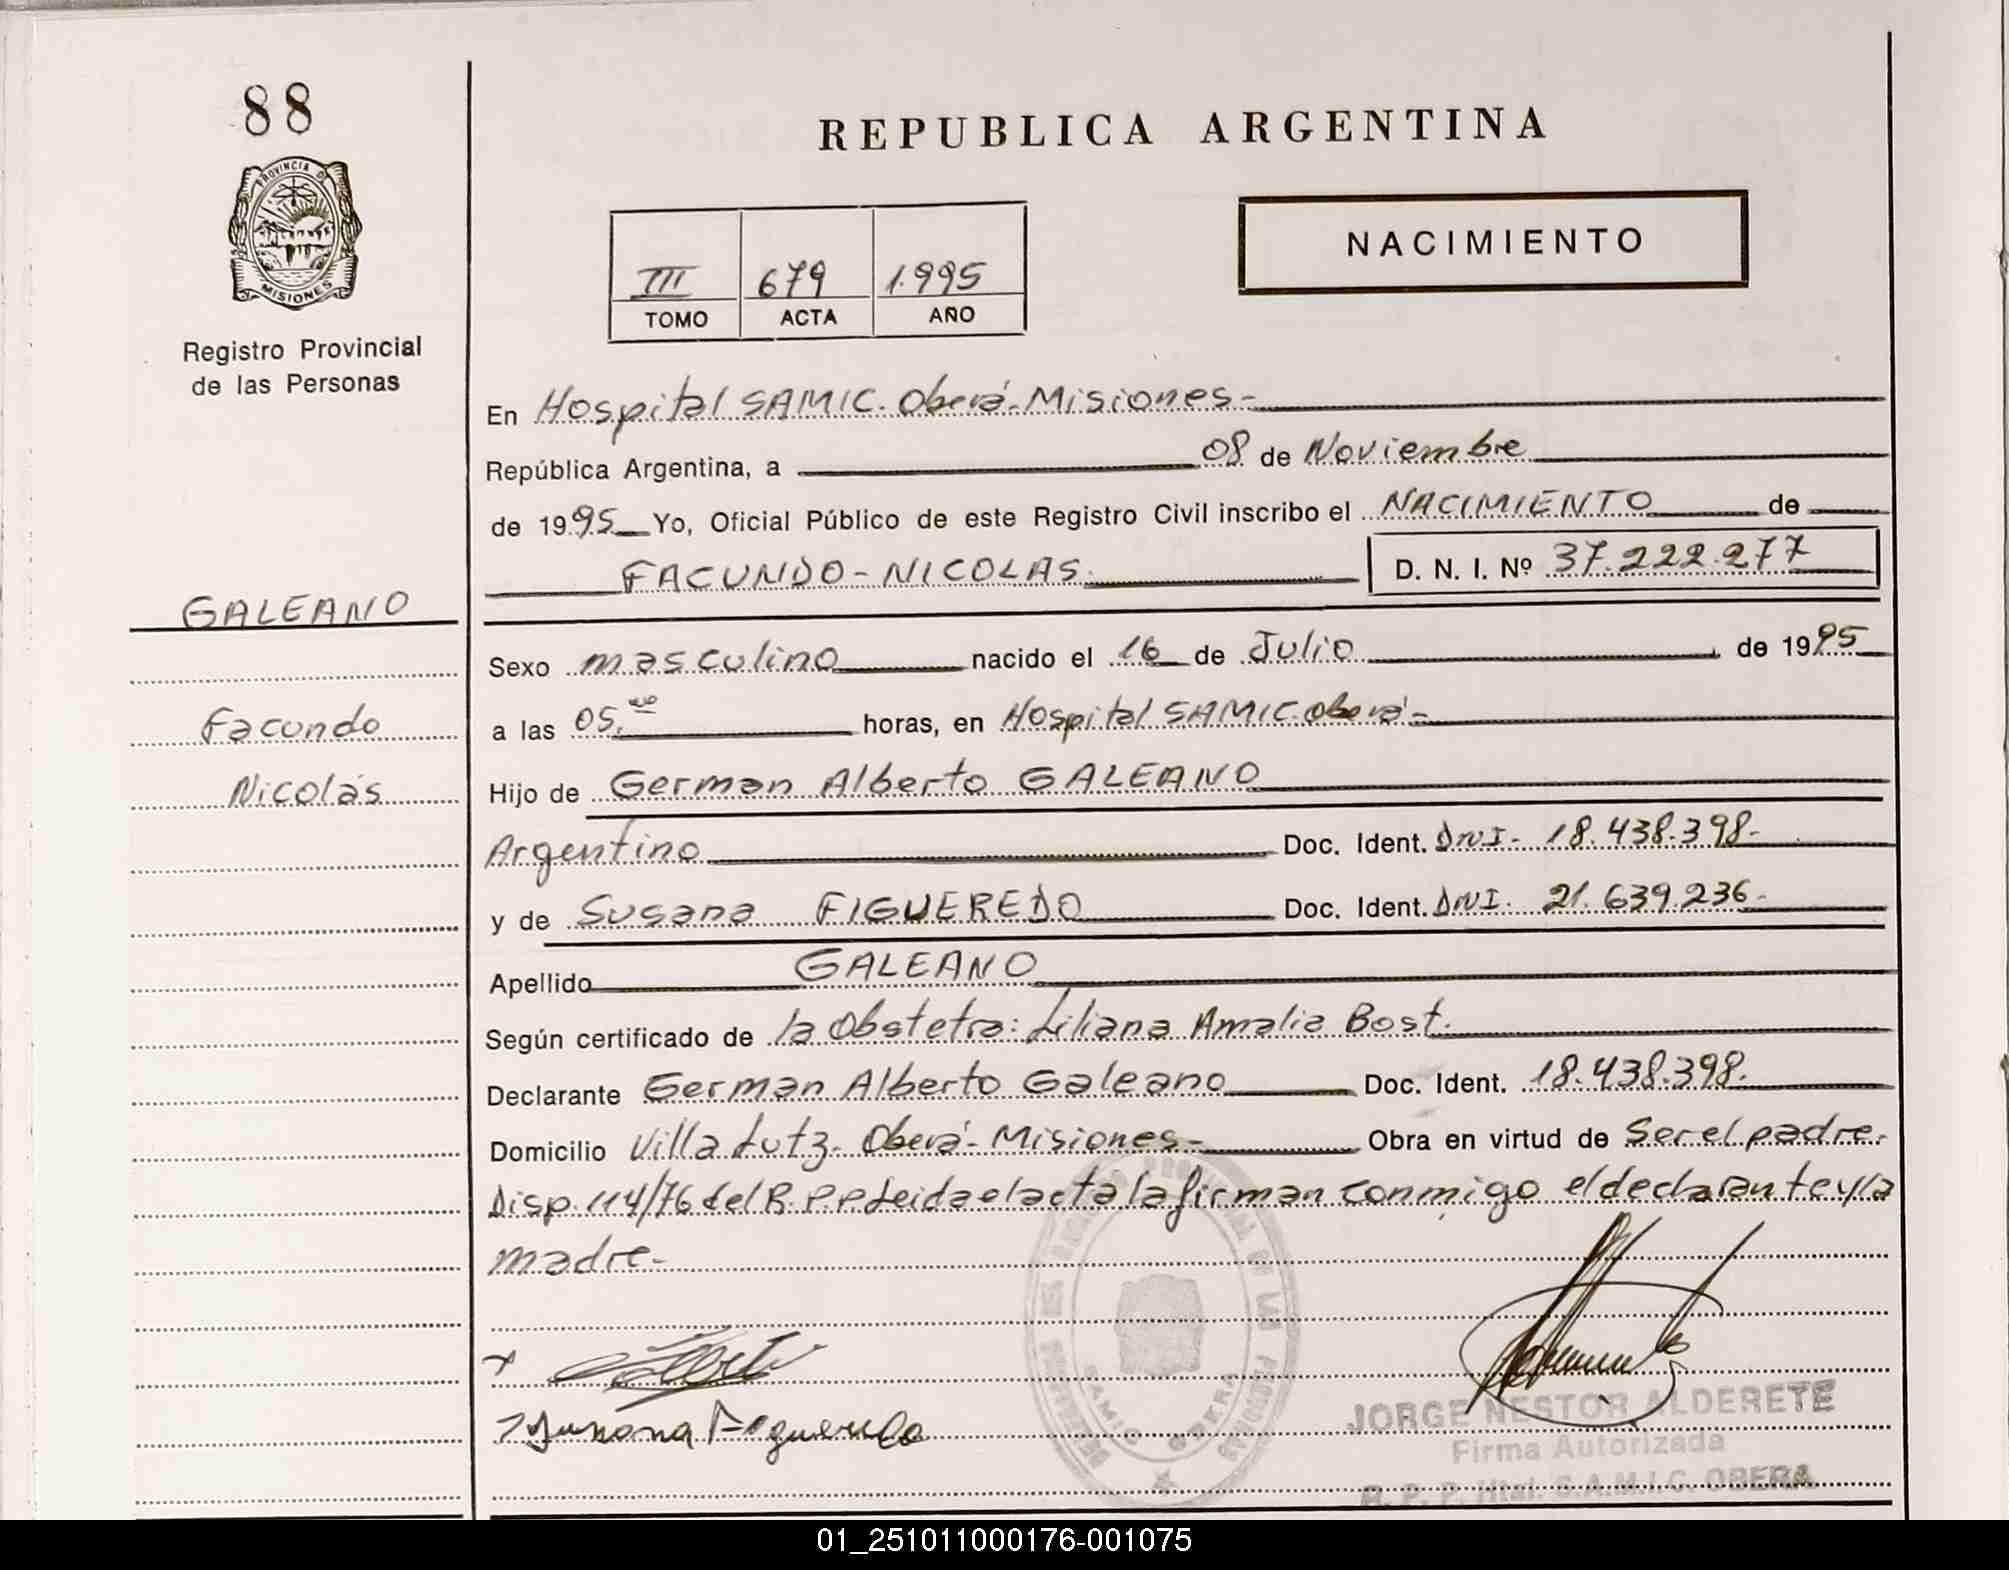 88
REPUBLICA ARGENTINA
PROVINCIA D
MISIONES
NACIMIENTO
III 679 1.995
TOMO ACTA AÑO
Registro Provincial
de las Personas
En Hospital SAMIC. Oberá-Misiones-
República Argentina, a 08 de Noviembre
de 1995 Yo, Oficial Público de este Registro Civil inscribo el NACIMIENTO de
FACUNDO-NICOLAS. D. N. I. Nº 37.222.277
GALEANO
Sexo masculino nacido el 16 de Julio de 1995
Facundo
a las 05. horas, en Hospital SAMIC-Oberá-
Nicolás
Hijo de German Alberto GALEANO
Argentino Doc. Ident. DNI- 18.438.398-
y de Susana FIGUEREDO Doc. Ident. DNI. 21.639.236-
Apellido GALEANO
Según certificado de la Obstetra: Liliana Amalia Bost.
Declarante German Alberto Galeano Doc. Ident. 18.438.398.
Domicilio Villa Lutz- Oberá- Misiones- Obra en virtud de Ser el padre.
Disp. 114/76 del R.P.P. Leida el acta la firman conmigo el declarante y la
madre-
Susana Figueredo
SAMIC OBERA
JORGE NESTOR ALDERETE
Firma Autorizada
R. P. P. Htal. S.A.M.I.C. OBERA
01_251011000176-001075